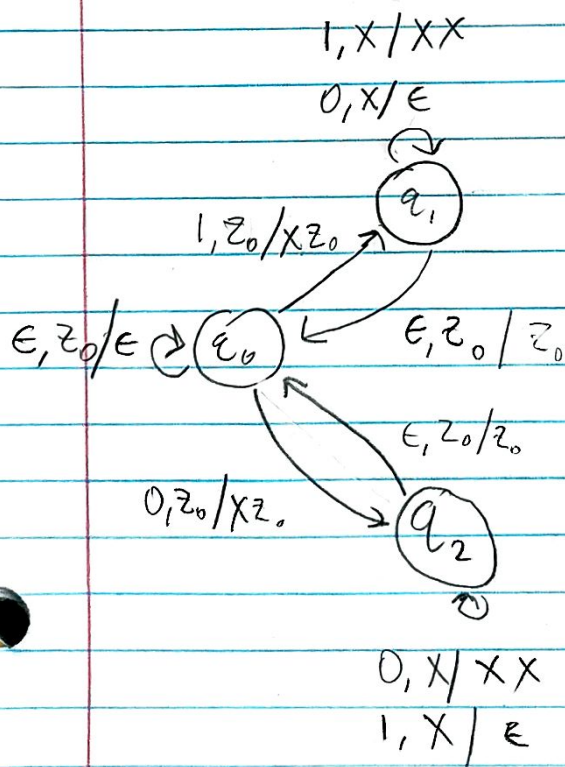 1, X / XX
0, X / ε
q₁
1, Z₀ / XZ₀
ε, Z₀ / ε
q₀
ε, Z₀ / Z₀
ε, Z₀ / Z₀
0, Z₀ / XZ₀
q₂
0, X / XX
1, X / ε